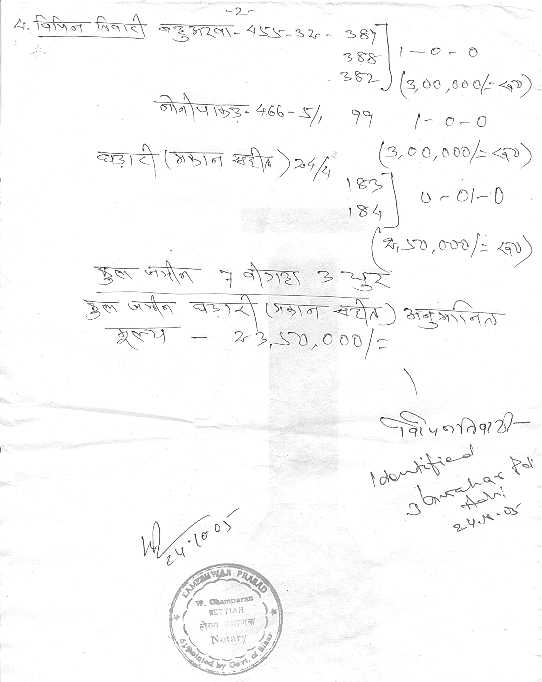 -2-
4. विपिन तिवारी बहुअरवा - 455-32- 387
388 1-0-0
382 (3,00,000/=
- 466-5/1 99 1-0-0
(3,00,000/=
घड़ारी (मकान सहीत) 24/4
183
184 0-01-0
(2,50,000/=
कुल जमीन 7 बीगहा 3 धुर
कुल जमीन घड़ारी (मकान सहीत) अनुमानित
मूल्य - 23,50,000/=
विपिन तिवारी
Identified
24.10.05
24.10.05
KAMESHWAR PRASAD
W. Champaran
BETTIAH
Notary
Appointed by Govt. of Bihar